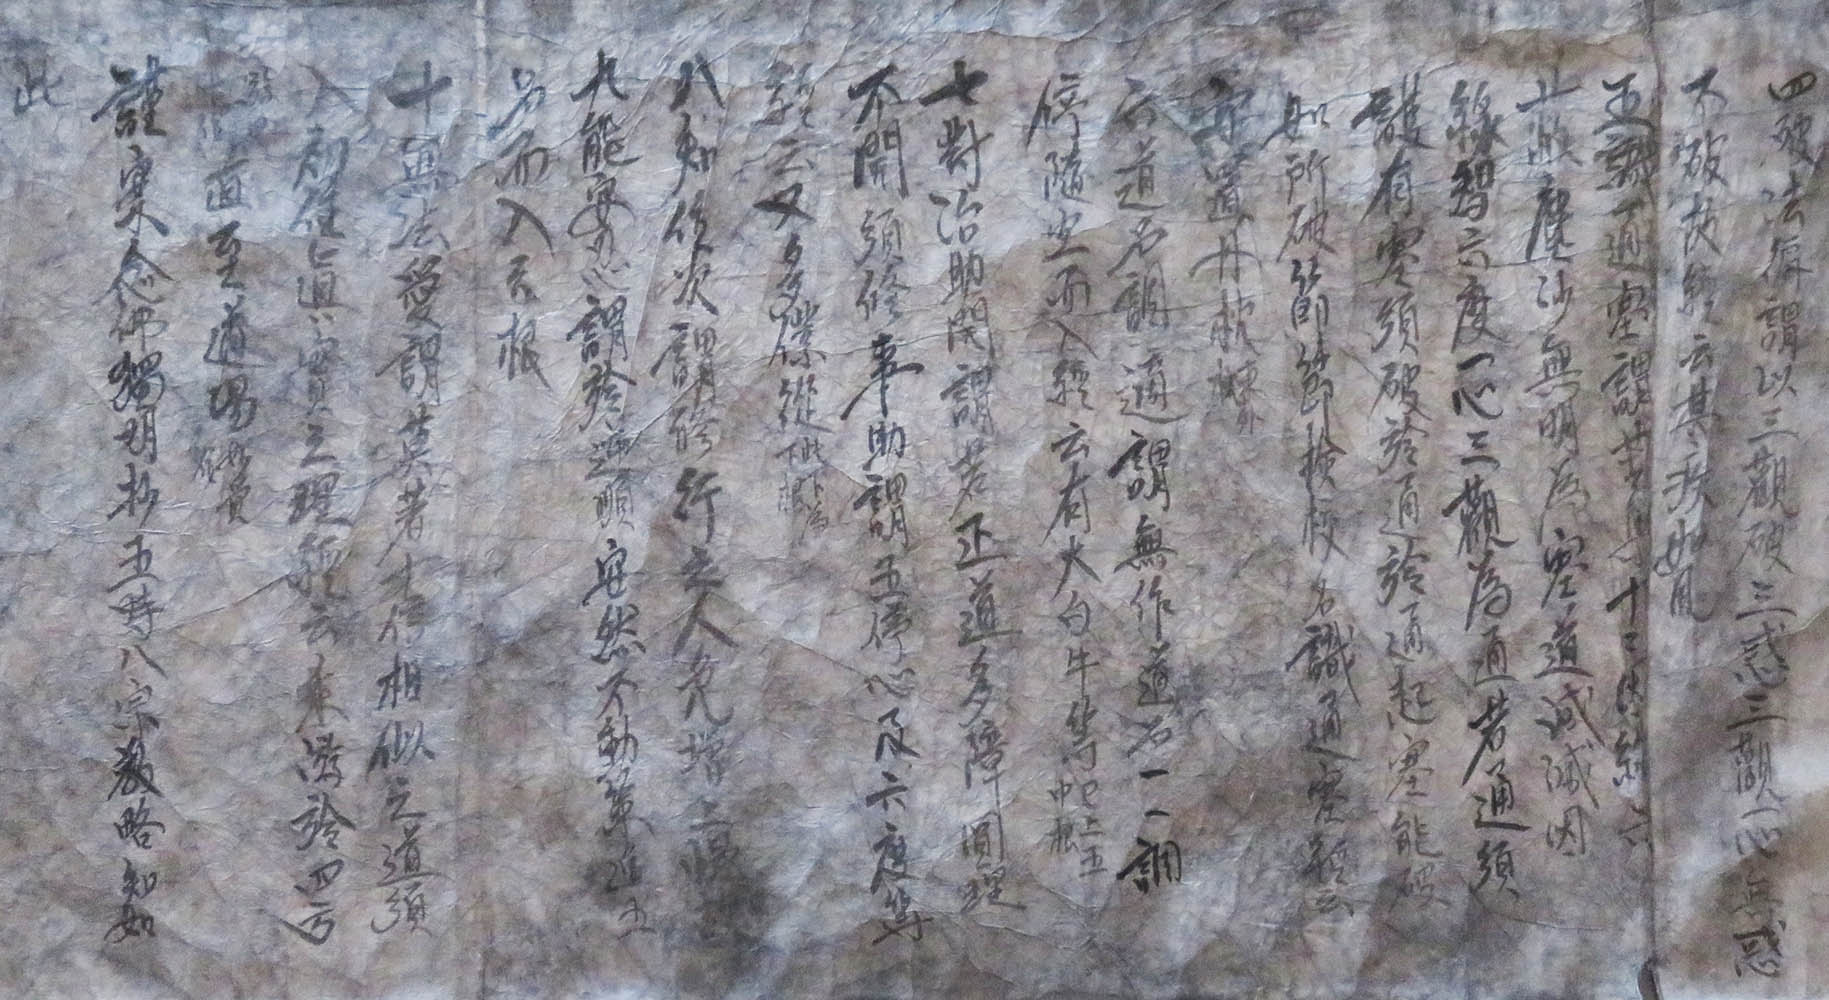 四破法徧謂以三觀破三惑三觀一心無惑
不破故經云其疾如風
五識通塞謂苦集十二因緣六
蔽塵沙無明為塞道滅滅因
緣智六度一心三觀為通若通須
護有塞須破於通起塞能破
如所破節節檢校名識通塞經云
安置丹枕
六道品調適謂無作道品一一調
停隨宜而入經云有大白牛等已上五中根
七對治助開謂若正道多障圓理
不開須修事助謂五停心及六度等
經云又多僕從此下為下根
八知位次謂修行之人免增上慢
九能安忍謂於逆順安然不動策進五
品而入六根
十無法愛謂莫著十信相似之道須
入初住真實之理經云乘遊於四方
直至道場
謹案念佛獨明抄五時八宗教略知如
此